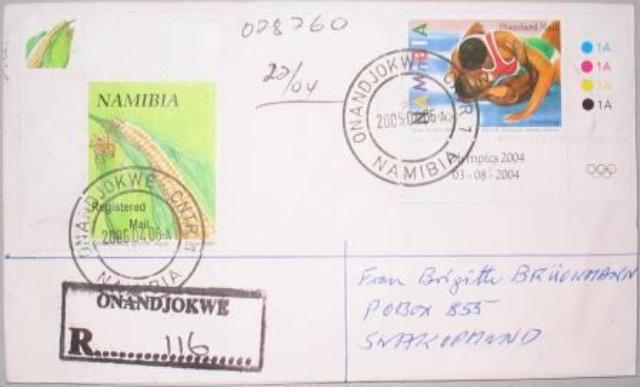 028760
20/04
NAMIBIA
Registered
Mail
ONANDJOKWE CNTR 1
2006.04.06-A
NAMIBIA
Standard Mail
NAMIBIA
ONANDJOKWE CNTR 1
NAMIBIA
1A
1A
1A
1A
Olympics 2004
03 - 08 - 2004
ONANDJOKWE
R 116
Frau Brigitte BRÜCKMANN
P O Box 855
SWAKOPMUND